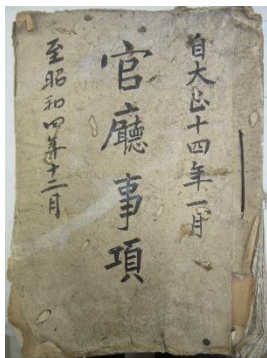 自大正十四年一月
官廳事項
至昭和四年十二月